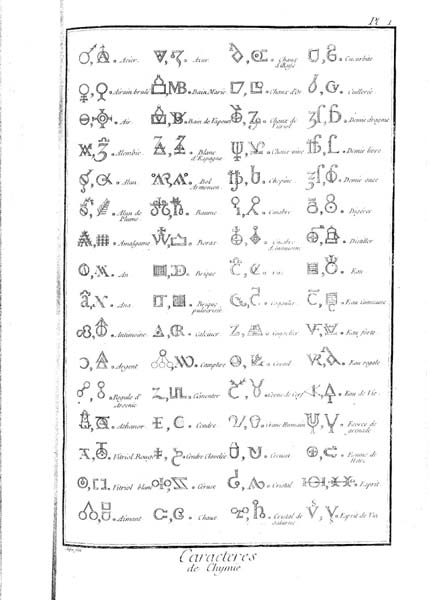 Pl. 1
Acier. Azur Cucurbite
Airain brulé Bain Marie Chaux d'Or Cuillerée
Air Bain de Vapeur Chaux de Vitriol Demie dragme
Alembic Blanc d'Espagne Chaux vive Demie livre
Alun Bol Armenien Chopine Demie once
Alun de Plume Baume Cinabre Digérer
Amalgame Borax Distiller
An Brique Eau
Ana Brique pulverisée Coaguler Eau commune
Antimoine Calciner Eau forte
Argent Camphre Eau regale
Regule d'Arsenic Cémenter Corne de Cerf Eau de Vie
Athanor Cendre Crane Humain
Vitriol Rouge Cendre Clavelée Creuset
Vitriol blanc Céruse Cristal Esprit
Aimant Chaux Esprit de Vin
Caracteres
de Chymie